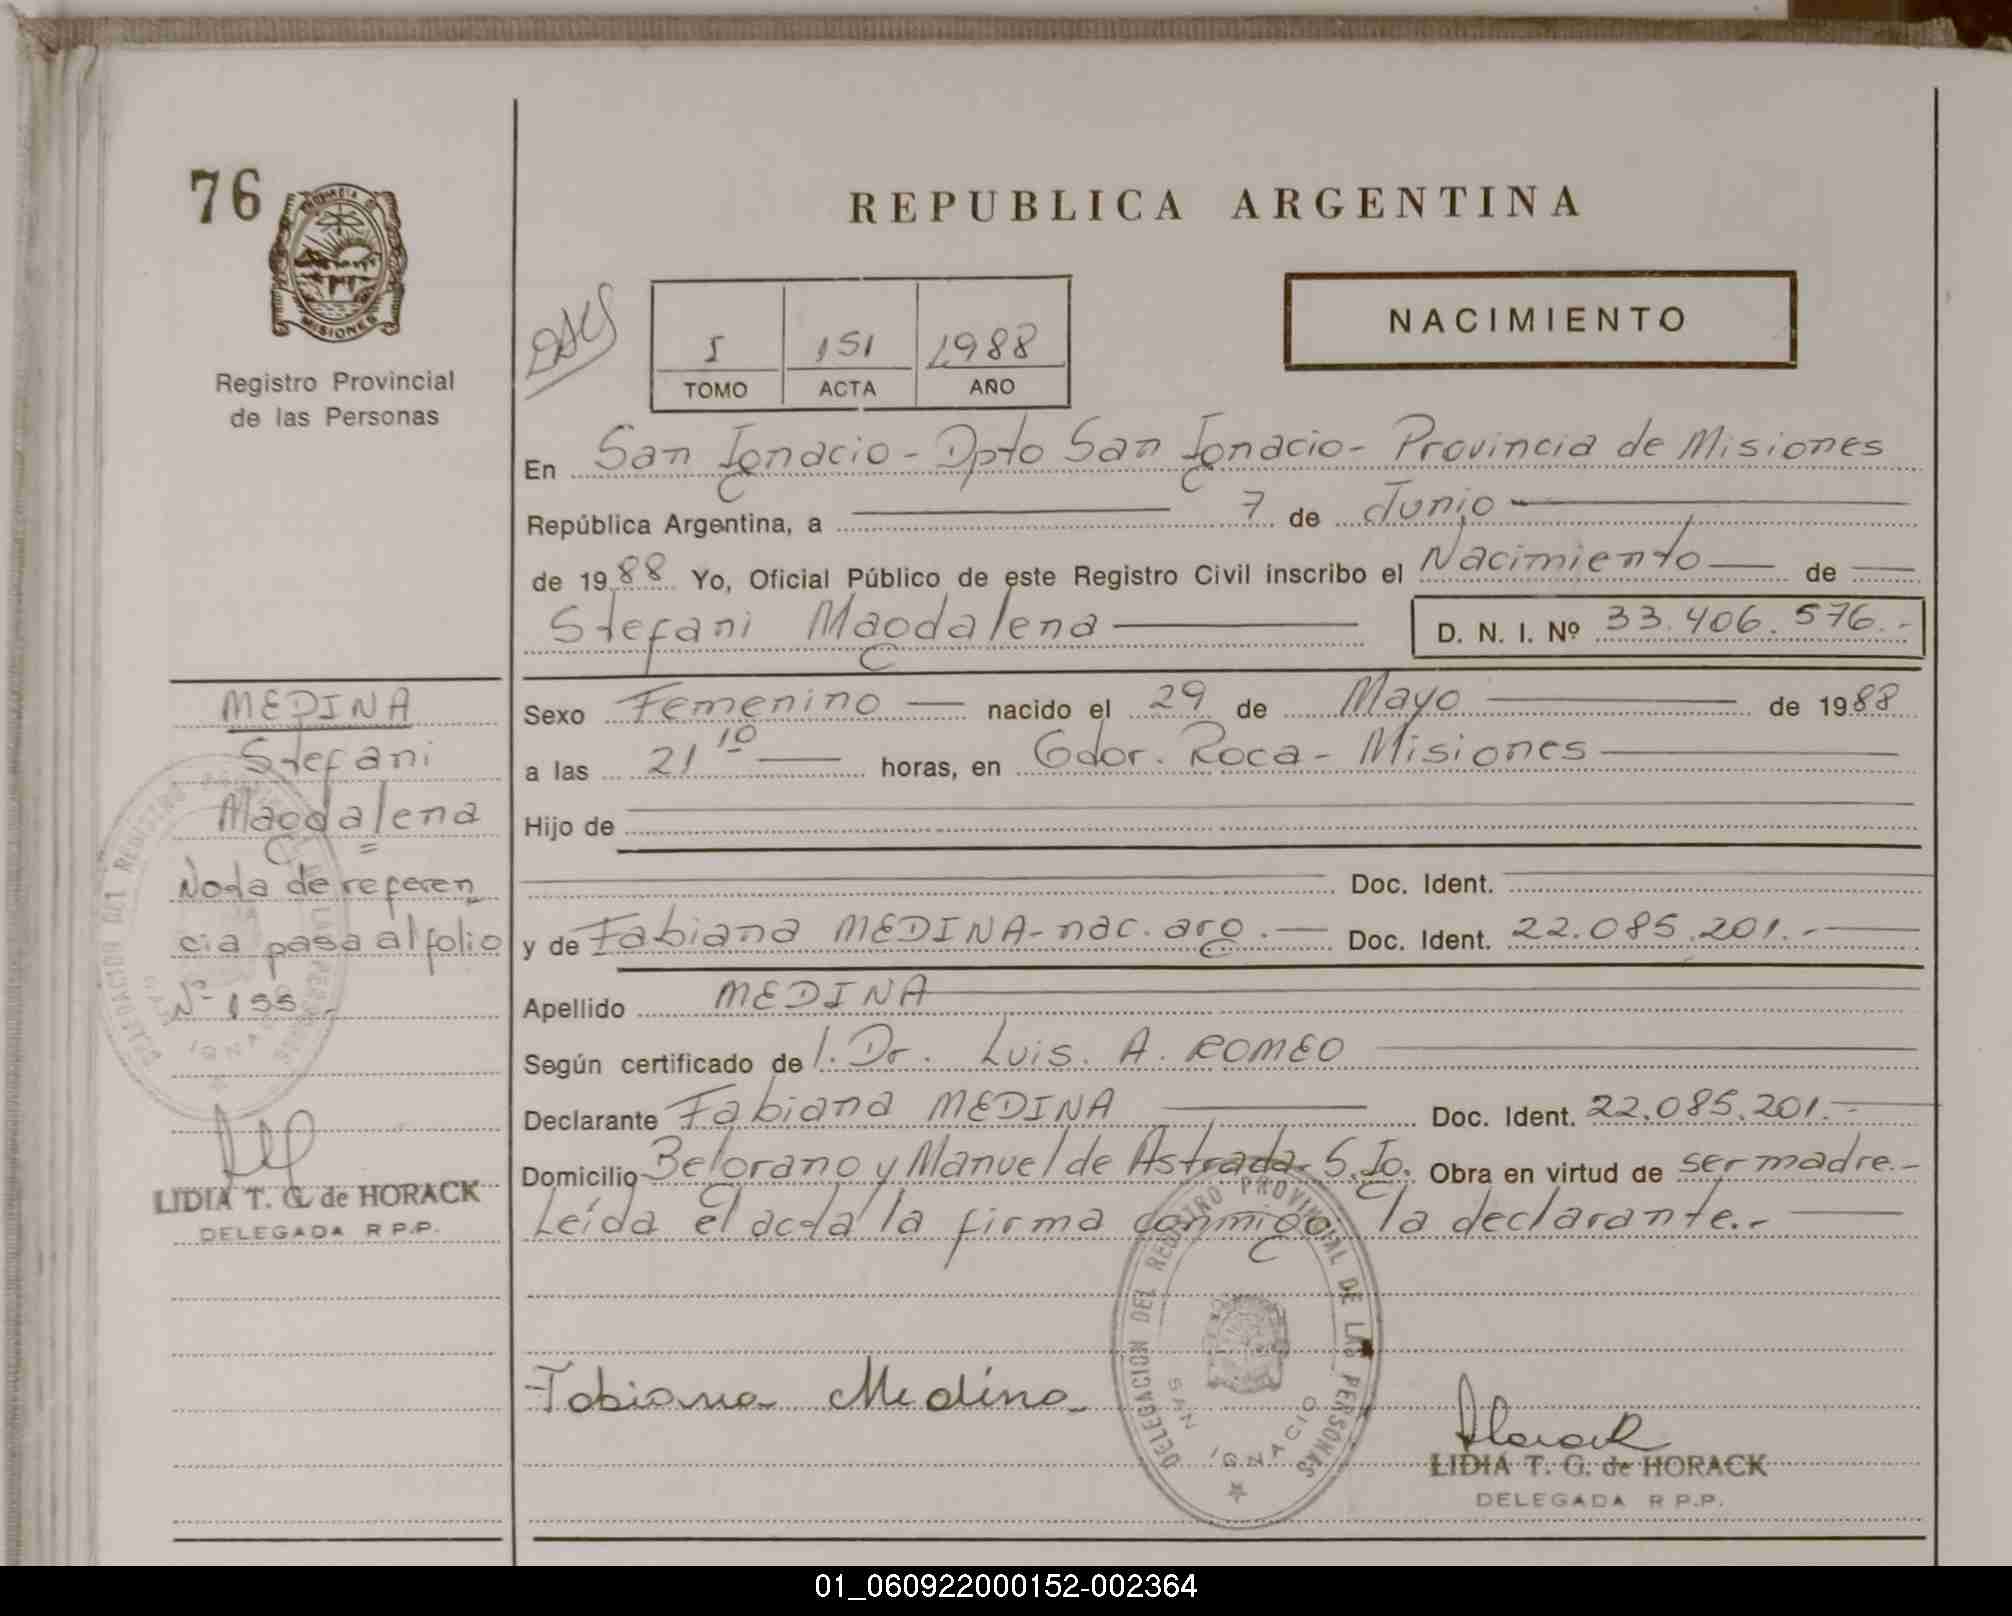 76
PROVINCIA DE
MISIONES
Registro Provincial
de las Personas
REPUBLICA ARGENTINA
NACIMIENTO
I 151 1988
TOMO ACTA AÑO
En San Ignacio - Dpto San Ignacio - Provincia de Misiones
República Argentina, a 7 de Junio
de 1988 Yo, Oficial Público de este Registro Civil inscribo el Nacimiento de
Stefani Magdalena D. N. I. Nº 33.406.576.-
Sexo Femenino nacido el 29 de Mayo de 1988
a las 21 10 horas, en Gdor. Roca - Misiones
Hijo de
Doc. Ident.
y de Fabiana MEDINA - nac. arg. Doc. Ident. 22.085.201.-
Apellido MEDINA
Según certificado de l. Dr. Luis. A. ROMEO
Declarante Fabiana MEDINA Doc. Ident. 22.085.201.-
Domicilio Belgrano y Manuel de Astrada - S. Ig. Obra en virtud de ser madre.-
Leída el acta la firma conmigo la declarante.-
Fabiana Medina
DELEGACION DEL REGISTRO PROVINCIAL DE LAS PERSONAS
SAN IGNACIO
Horack
LIDIA T. G. de HORACK
DELEGADA R P.P.
MEDINA
Stefani
Magdalena
Nota de referen
cia pasa al folio
Nº 155.-
DELEGACION DEL REGISTRO PROVINCIAL DE LAS PERSONAS
SAN IGNACIO
LIDIA T. G. de HORACK
DELEGADA R P.P.
01_060922000152-002364